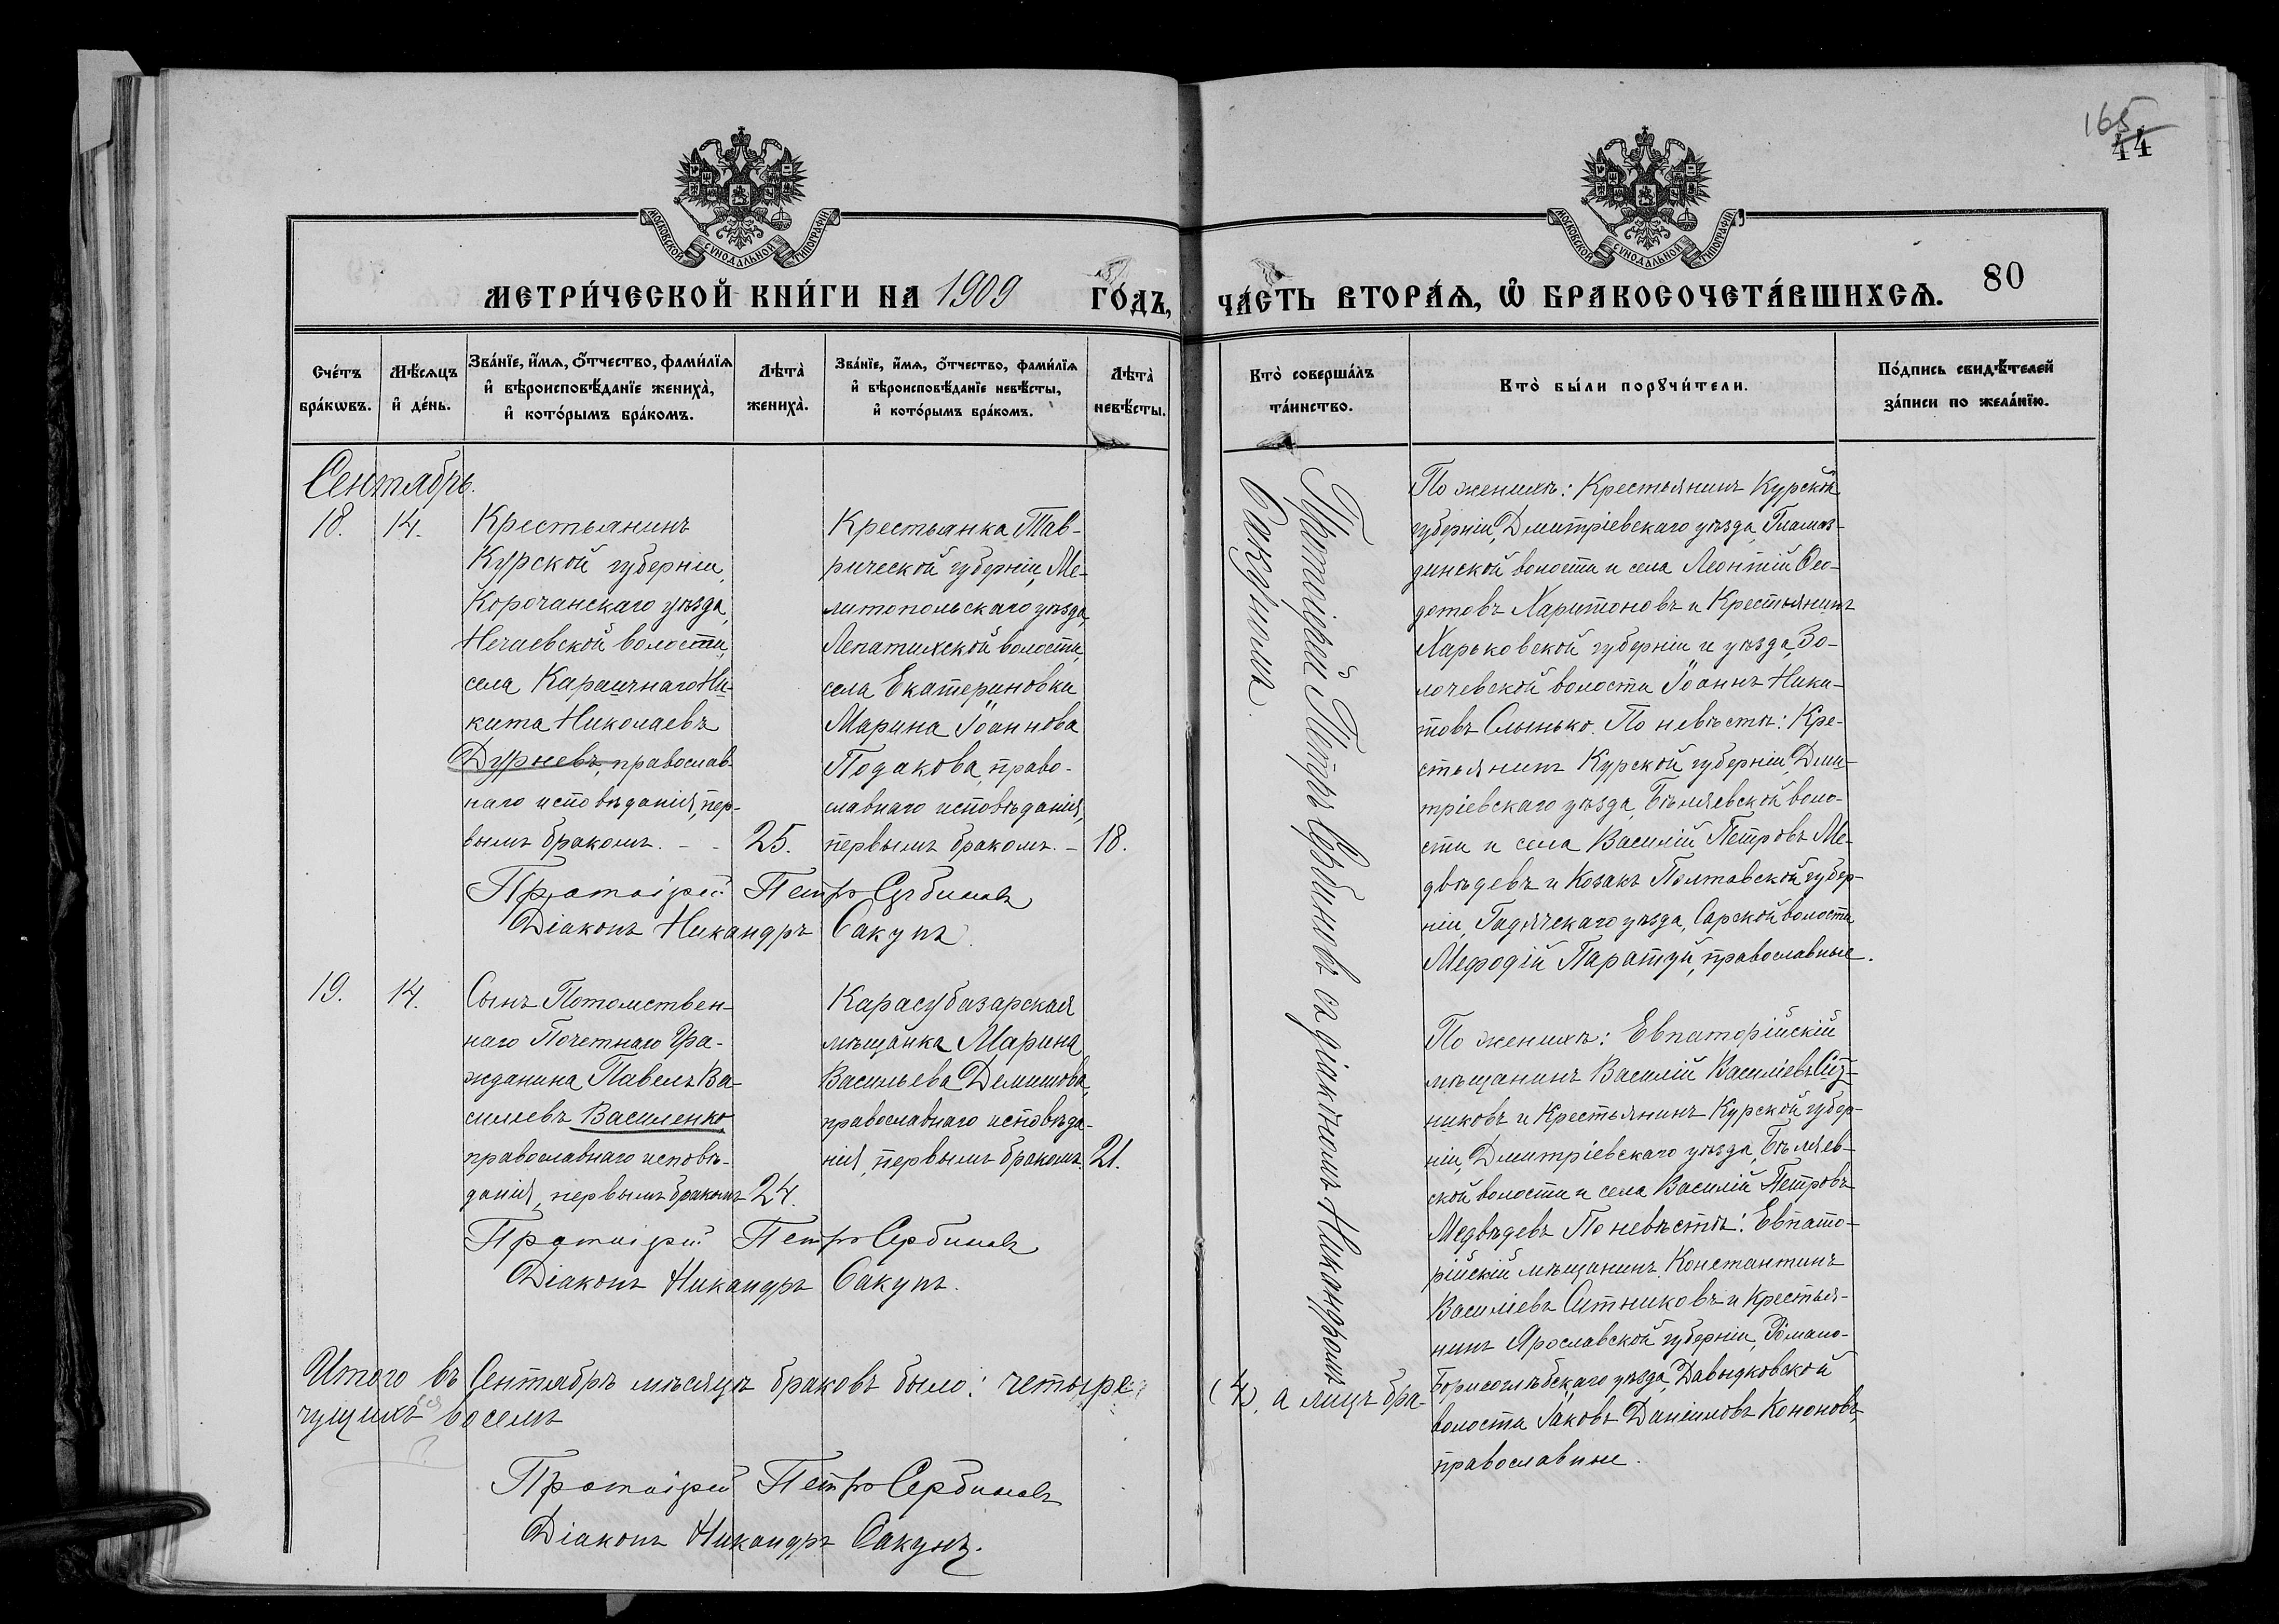 165
44
МОСКОВСКОЙ СѴНОДАЛЬНОЙ ТИПОГРАФІИ
МОСКОВСКОЙ СѴНОДАЛЬНОЙ ТИПОГРАФІИ
МЕТРИ́ЧЕСКОЙ КНИ́ГИ НА 1909 ГО́ДЪ,
ЧА́СТЬ ВТОРА́Ѧ, Ѽ БРАКОСОЧЕТА́ВШИХСѦ.
80
Сче́тъ
бра́кѡвъ.
Мѣ́сѧцъ
и҆ де́нь.
Зва́нїе, и҆́мѧ, ѻ҆́тчество, фами́лїѧ
и҆ вѣроисповѣ́данїе жениха̀,
и҆ кото́рымъ бра́комъ.
Лѣта̀
жениха̀.
Зва́нїе, и҆́мѧ, ѻ҆́тчество, фами́лїѧ
и҆ вѣроисповѣ́данїе невѣ́сты,
и҆ кото́рымъ бра́комъ.
Лѣта̀
невѣ́сты.
Кто̀ соверша́лъ
та́инство.
Кто̀ бы́ли порꙋчи́тели.
По́дпись свидѣ́телей
за́писи по жела́нїю.
Сентябрь.
18.
14.
Крестьянинъ
Курской губерніи,
Корочанскаго уѣзда,
Нечаевской волости,
села Караичнаго Ни-
кита Николаевъ
Дурневъ, православ-
наго исповѣданія, пер-
вымъ бракомъ. - -
25.
Крестьянка Тав-
рической губерніи, Ме-
литопольскаго уѣзда,
Лепатихской волости,
села Екатериновки
Марина Іоаннова
Подакова, право-
славнаго исповѣданія,
первымъ бракомъ. -
18.
Протоіерей Петръ Сербиновъ
Діаконъ Никандръ Сакунъ.
Протоіерей Петръ Сербиновъ съ діакономъ Никандромъ
Сакуномъ.
По женихѣ: Крестьянинъ Курской
губерніи, Дмитріевскаго уѣзда, Гламаз-
динской волости и села Леонтій Ѳео-
дотовъ Харитоновъ и Крестьянинъ
Харьковской губерніи и уѣзда, Зо-
лочевской волости Іоаннъ Ники-
товъ Слынько. По невѣстѣ: Кре-
стьянинъ Курской губерніи, Дми-
тріевскаго уѣзда, Бѣляевской воло-
сти и села Василій Петровъ Ме-
двѣдевъ и Козакъ Полтавской губер-
ніи, Гадячскаго уѣзда, Сарской волости
Меѳодій Паратуй, православные.
19.
14.
Сынъ Потомствен-
наго Почетнаго Гра-
жданина Павелъ Ва-
силіевъ Василенко
православнаго исповѣ-
данія, первымъ бракомъ
24.
Карасубазарская
мѣщанка Марина
Васильева Демишова,
православнаго исповѣда-
нія, первымъ бракомъ
21.
Протоіерей Петръ Сербиновъ
Діаконъ Никандръ Сакунъ.
По женихѣ: Евпаторійскій
мѣщанинъ Василій Василіевъ Сит-
никовъ и Крестьянинъ Курской губер-
ніи, Дмитріевскаго уѣзда, Бѣляев-
ской волости и села Василій Петровъ
Медвѣдевъ По невѣстѣ: Евпато-
рійскій мѣщанинъ Константинъ
Василіевъ Ситниковъ и Крестья-
нинъ Ярославской губерніи, Романо-
Борисоглѣбскаго уѣзда, Давыдковской
волости Іаковъ Даніиловъ Кононовъ,
православные.
Итого въ Сентябрѣ мѣсяцѣ браковъ было: четыре (4), а лицъ бра-
чущихся восемь
Протоіерей Петръ Сербиновъ
Діаконъ Никандръ Сакунъ.